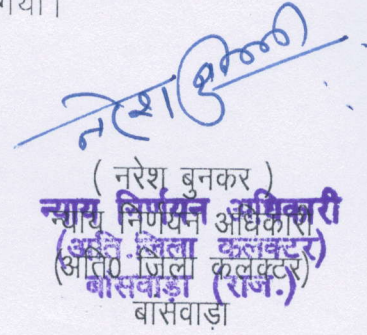 गया।
नरेश
( नरेश बुनकर )
न्याय निर्णयन अधिकारी
न्याय निर्णयन अधिकारी
(अति.जिला कलक्टर)
(अति0 जिला कलक्टर)
बांसवाड़ा (राज.)
बांसवाड़ा